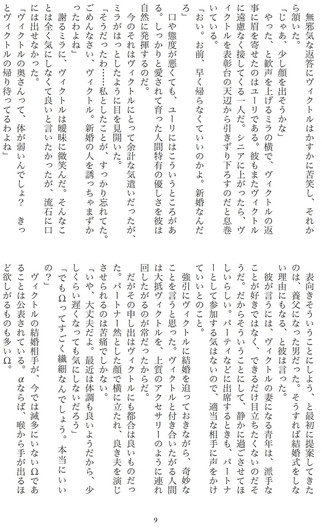 無邪気な返答にヴィクトルはかすかに苦笑し、それか
ら頷いた。
「じゃあ、少し顔を出そうかな」
やった、と歓声を上げるミラの横で、ヴィクトルの返
事に眉を寄せたのはユーリである。彼もまたヴィクトル
に遠慮なく接してくる一人だ。シニアに上がったら、ヴ
ィクトルを表彰台の天辺から引きずり下ろすのだと息巻
いている。
「おい。お前、早く帰らなくていいのかよ。新婚なんだ
ろ」
口や態度が悪くても、ユーリにはこういうところがあ
る。しっかりと愛されて育った人間特有の優しさを彼は
自然に発揮するのだ。
今のそれはヴィクトルにとって余計な気遣いだったが、
ミラがはっとしたように目を見開いた。
「そうだったわ……私としたことが、すっかり忘れてた。
ごめんなさい、ヴィクトル。新婚の人を誘っちゃまずか
ったわよね」
謝るミラに、ヴィクトルは曖昧に微笑んだ。そんなこ
とは全く気にしなくて良いと言いたかったが、流石に口
に出せなかった。
「ヴィクトルの奥さんって、体が弱いんでしょ？　きっ
とヴィクトルの帰り待ってるわよね」
表向きそういうことにしよう、と最初に提案してきた
のは、義父になった男だった。そうすれば結婚式をしな
い理由にもなる、と彼は言った。
彼が言うには、ヴィクトルの妻になる青年は、派手な
ことが好きではなく、できるだけ目立ちたくないのだそ
うだ。だからそういうことにして、静かに過ごさせてほ
しいらしい。パーティなどに出席するときも、パートナ
ーとして参加する気はないので、適当な相手に声をかけ
ていいとのこと。
強引にヴィクトルに結婚を迫っておきながら、奇妙な
ことを言うと思った。ヴィクトルと付き合いたがる人間
は大抵ヴィクトルを、上質のアクセサリーのように連れ
回したがるのが常だったからだ。
だがその申し出はヴィクトルにも都合は良いものだっ
た。パートナー然とした顔で横に立たれ、良き夫を演じ
させられるのは苦痛でしかない。
「いや、大丈夫だよ。最近は体調も良いようだから、少
しくらい遅くなっても気にしないだろう」
「でもΩってすごく繊細なんでしょう。本当にいい
の？」
ヴィクトルの結婚相手が、今では滅多にいないΩであ
ることは公表されている。αならば、喉から手が出るほ
ど欲しがるものも多いΩ。
9